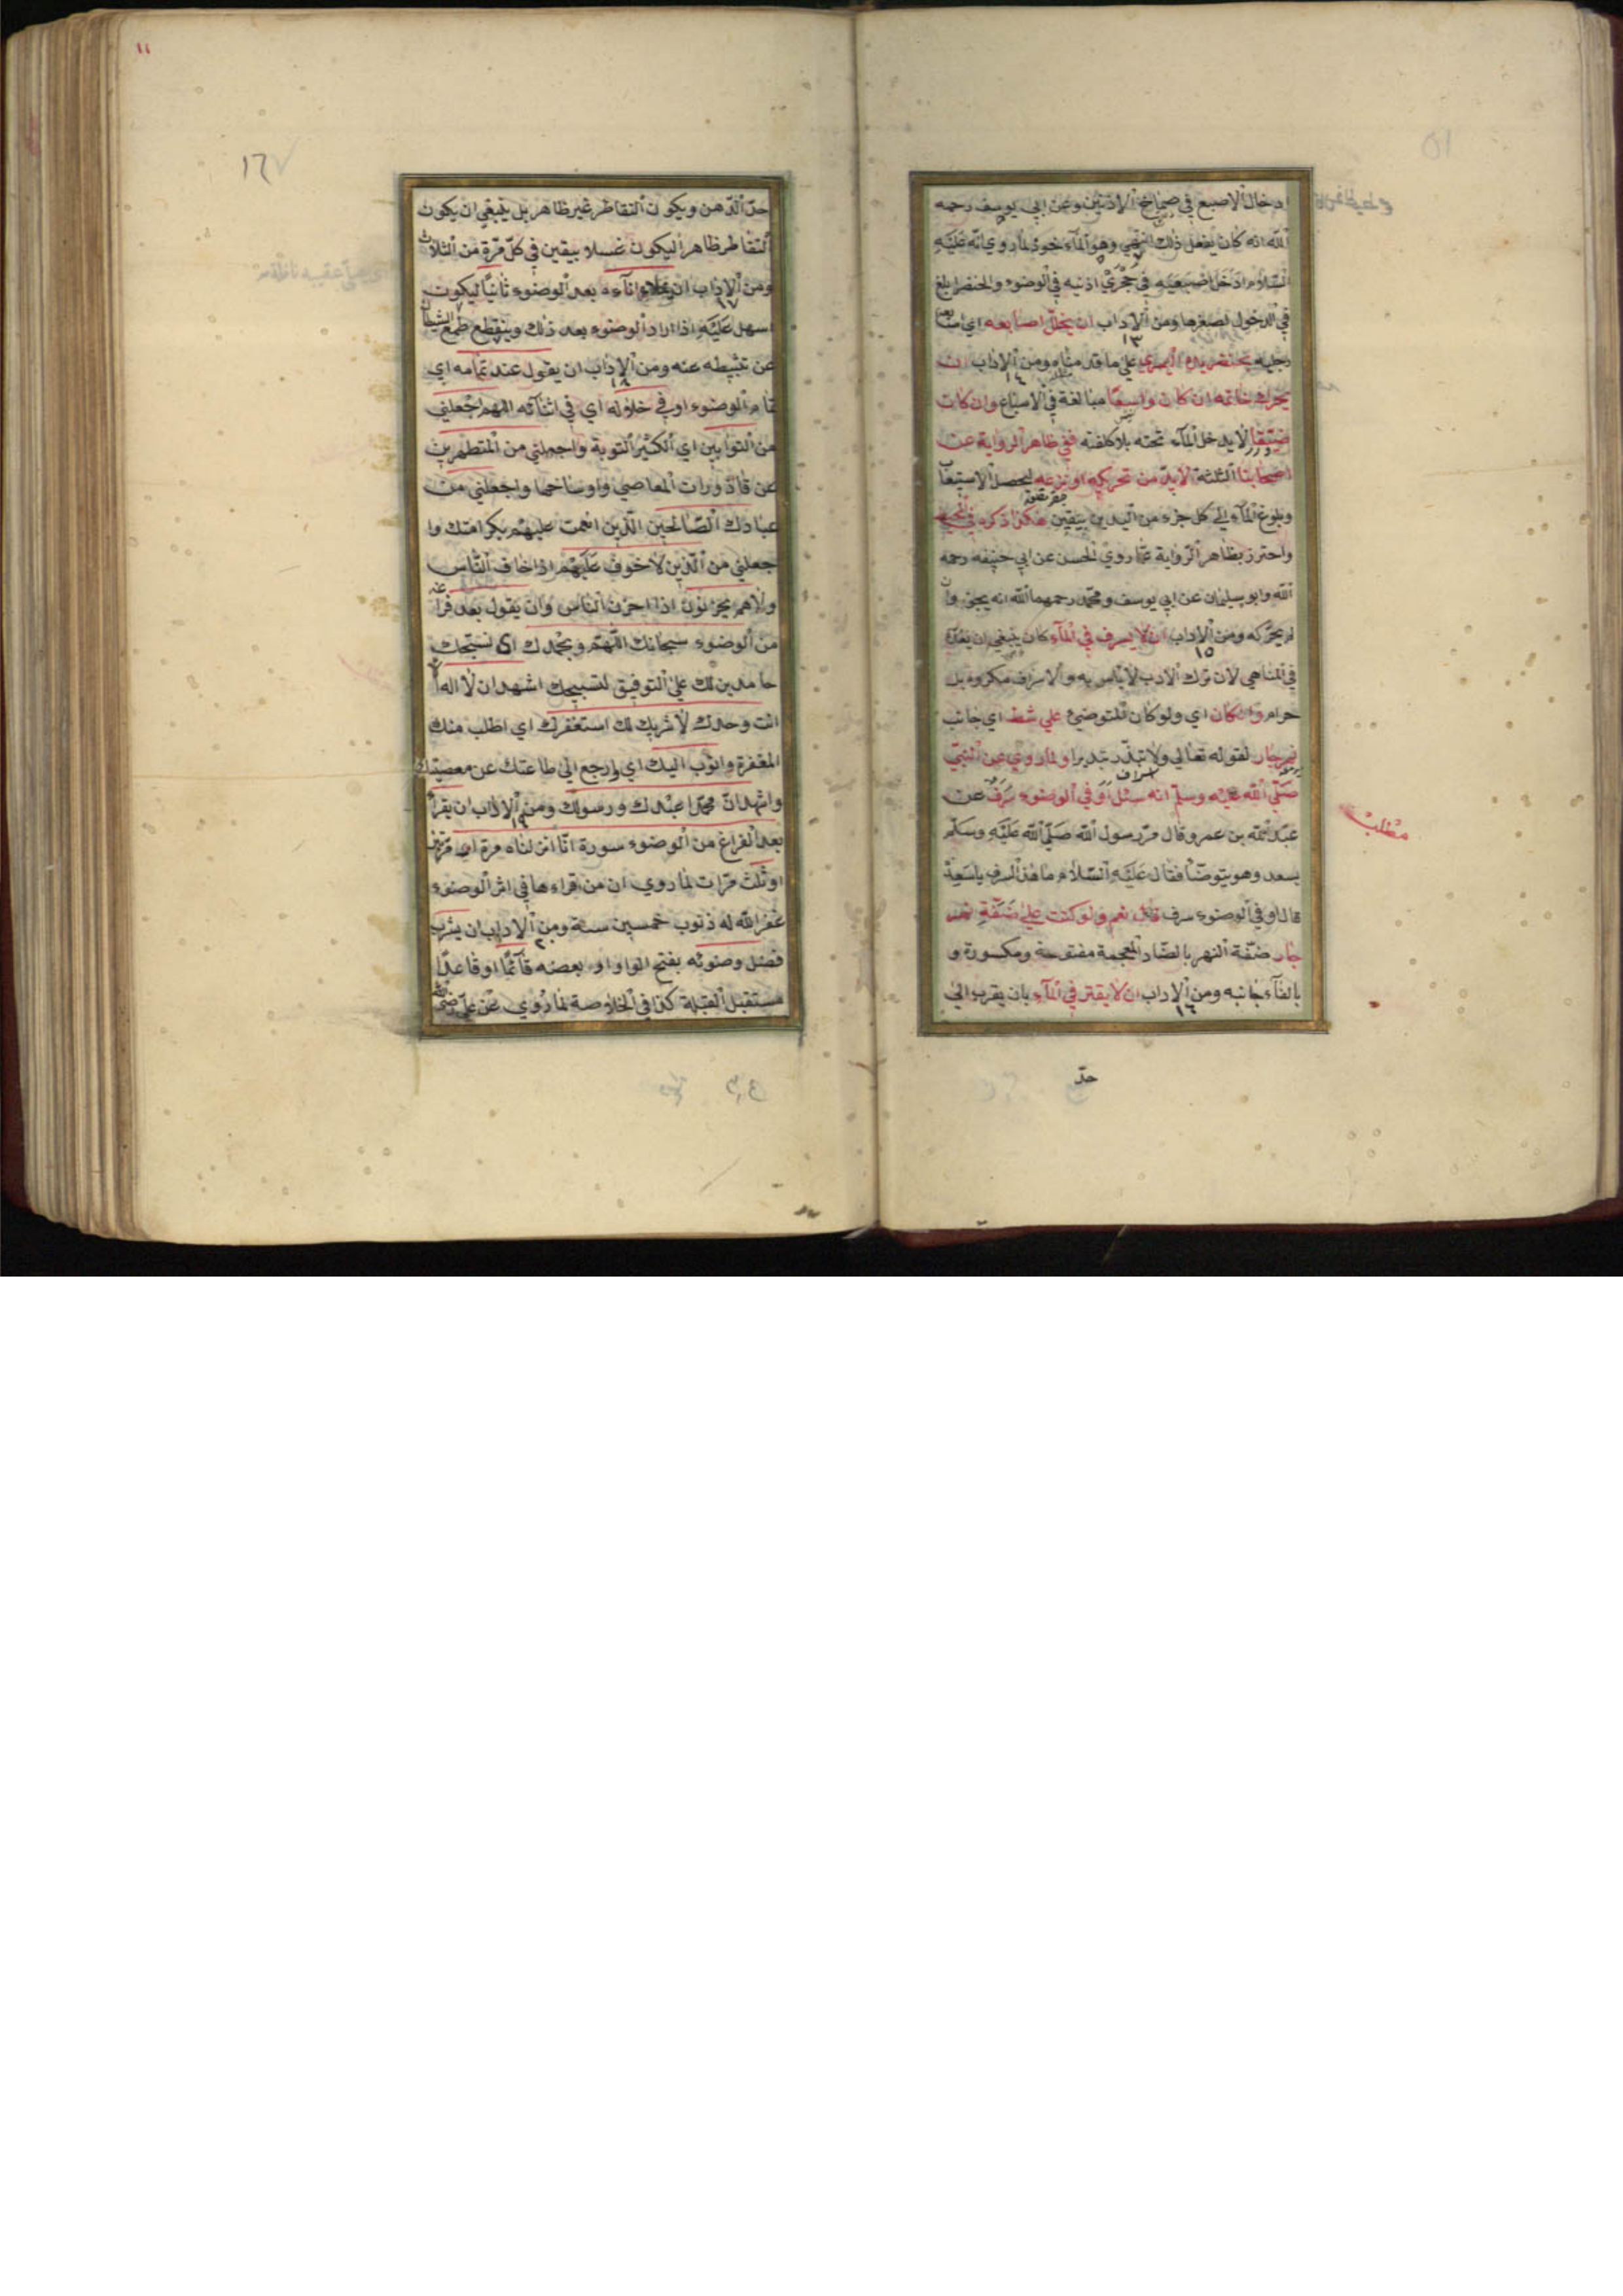 ادخال الاصبع في صماخ الاذنين وعن ابي يوسف رحمه
الله انه كان يفعل ذلك
السلام ادخل اصبعيه في حجري اذنيه في الوضوء والخنصر ابلغ
في الدخول لصغرها ومن الاداب ان يخلل اصابعه اي اصابع
١٣
رجليه بخنصر يده اليسرى علي ما قدمناه ومن الاداب ان
١٤
يحرك خاتمه ان كان واسعا مبالغة في الاسباغ وان كان
ضيقا لا يدخل المآء تحته بلا كلفة ففي ظاهر الرواية عن
اصحابنا الثلثة لا بد من تحريكه او نزعه ليحصل الاستيعاب
وبلوغ المآء الي كل جزء من اليدين بيقين هكذا ذكره في المحيط
واحترز بظاهر الرواية عما روي الحسن عن ابي حنيفه رحمه
الله وابو سليمان عن ابي يوسف ومحمد رحمهما الله انه يجوز وان
لم يحركه ومن الاداب ان لا يسرف في المآء كان ينبغي ان يعده
١٥
في المناهي لان ترك الادب لا بأس به والاسراف مكروه بل
حرام وان كان اي ولو كان المتوضئ علي شط اي جانب
نهر جار لقوله تعالي ولا تبذر تبذيرا ولما روي عن النبي
اسراف
صلّي الله عليه وسلم انه سئل اوَ في الوضوء سرف عن
عبد الله بن عمرو قال مر رسول الله صلّي الله عليه وسلّم
بسعد وهو يتوضأ فقال عليه السلام ما هذا السرف يا سعد
مطلب
قال او في الوضوء سرف قال نعم ولو كنت علي ضفة نهر
جار ضفة النهر بالضاد المعجمة مفتوحة ومكسورة و
بالفآء جانبه ومن الاداب ان لا يقتر في المآء بان يقرب الي
١٦
حدّ
١١
١٦٧
حدّ الدهن ويكون التقاطر غير ظاهر بل ينبغي ان يكون
التقاطر ظاهرا ليكون غسلا بيقين في كل مرة من الثلاث
ومن الاداب ان يملأ انآءه بعد الوضوء ثانيًا ليكون
١٧
اسهل عليه اذا اراد الوضوء بعد ذلك وينقطع طمع الشيطان
عن تثبيطه عنه ومن الاداب ان يقول عند تمامه اي
١٨
تمام الوضوء او في خلاله اي في اثنآئه اللهم اجعلني
من التوابين اي الكثير التوبة واجعلني من المتطهرين
عن قاذورات المعاصي واوساخها واجعلني من
عبادك الصالحين الذين انعمت عليهم بكرامتك وا
جعلني من الذين لا خوف عليهم اذا خاف الناس
ولا هم يحزنون اذا احزن الناس وان يقول بعد فراغه
من الوضوء سبحانك اللهم وبحمدك اي نسبحك
حامدين لك علي التوفيق لتسبيحك اشهد ان لا اله الا
انت وحدك لا شريك لك استغفرك اي اطلب منك
المغفرة واتوب اليك اي وارجع الي طاعتك عن معصيتك
واشهد ان محمدا عبدك ورسولك ومن الاداب ان يقرأ
١٩
بعد الفراغ من الوضوء سورة انا انزلناه مرة او مرتين
او ثلث مرات لما روي ان من قراءها في اثر الوضوء
غفر الله له ذنوب خمسين سنة ومن الاداب ان يشرب
فضل وضوئه بفتح الواو او بعضه قآئمًا او قاعدًا
مستقبل القبلة كذا في الخلاصة لما روي عن علي رضي الله